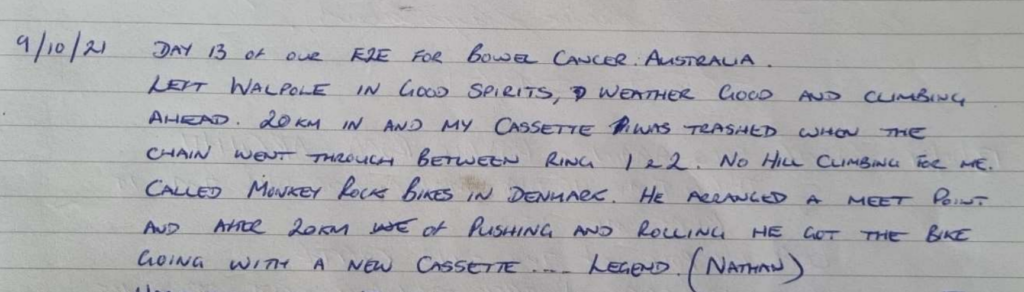 9/10/21 DAY 13 OF OUR E2E FOR BOWEL CANCER AUSTRALIA.
LEFT WALPOLE IN GOOD SPIRITS, WEATHER GOOD AND CLIMBING
AHEAD. 20KM IN AND MY CASSETTE WAS TRASHED WHEN THE
CHAIN WENT THROUGH BETWEEN RING 1 & 2. NO HILL CLIMBING FOR ME.
CALLED MONKEY ROCK BIKES IN DENMARK. HE ARRANGED A MEET POINT
AND AFTER 20KM OF PUSHING AND ROLLING HE GOT THE BIKE
GOING WITH A NEW CASSETTE .... LEGEND. (NATHAN)